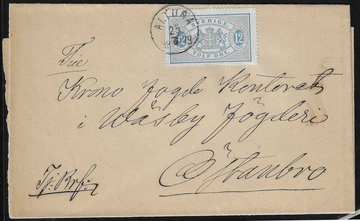 ALTUNA
SVERIGE
12 12
TOLF ÖRE
Till
Krono Jägde Kontoret
i Wäsby Jögderi
Östanbro
Tj: Brf.